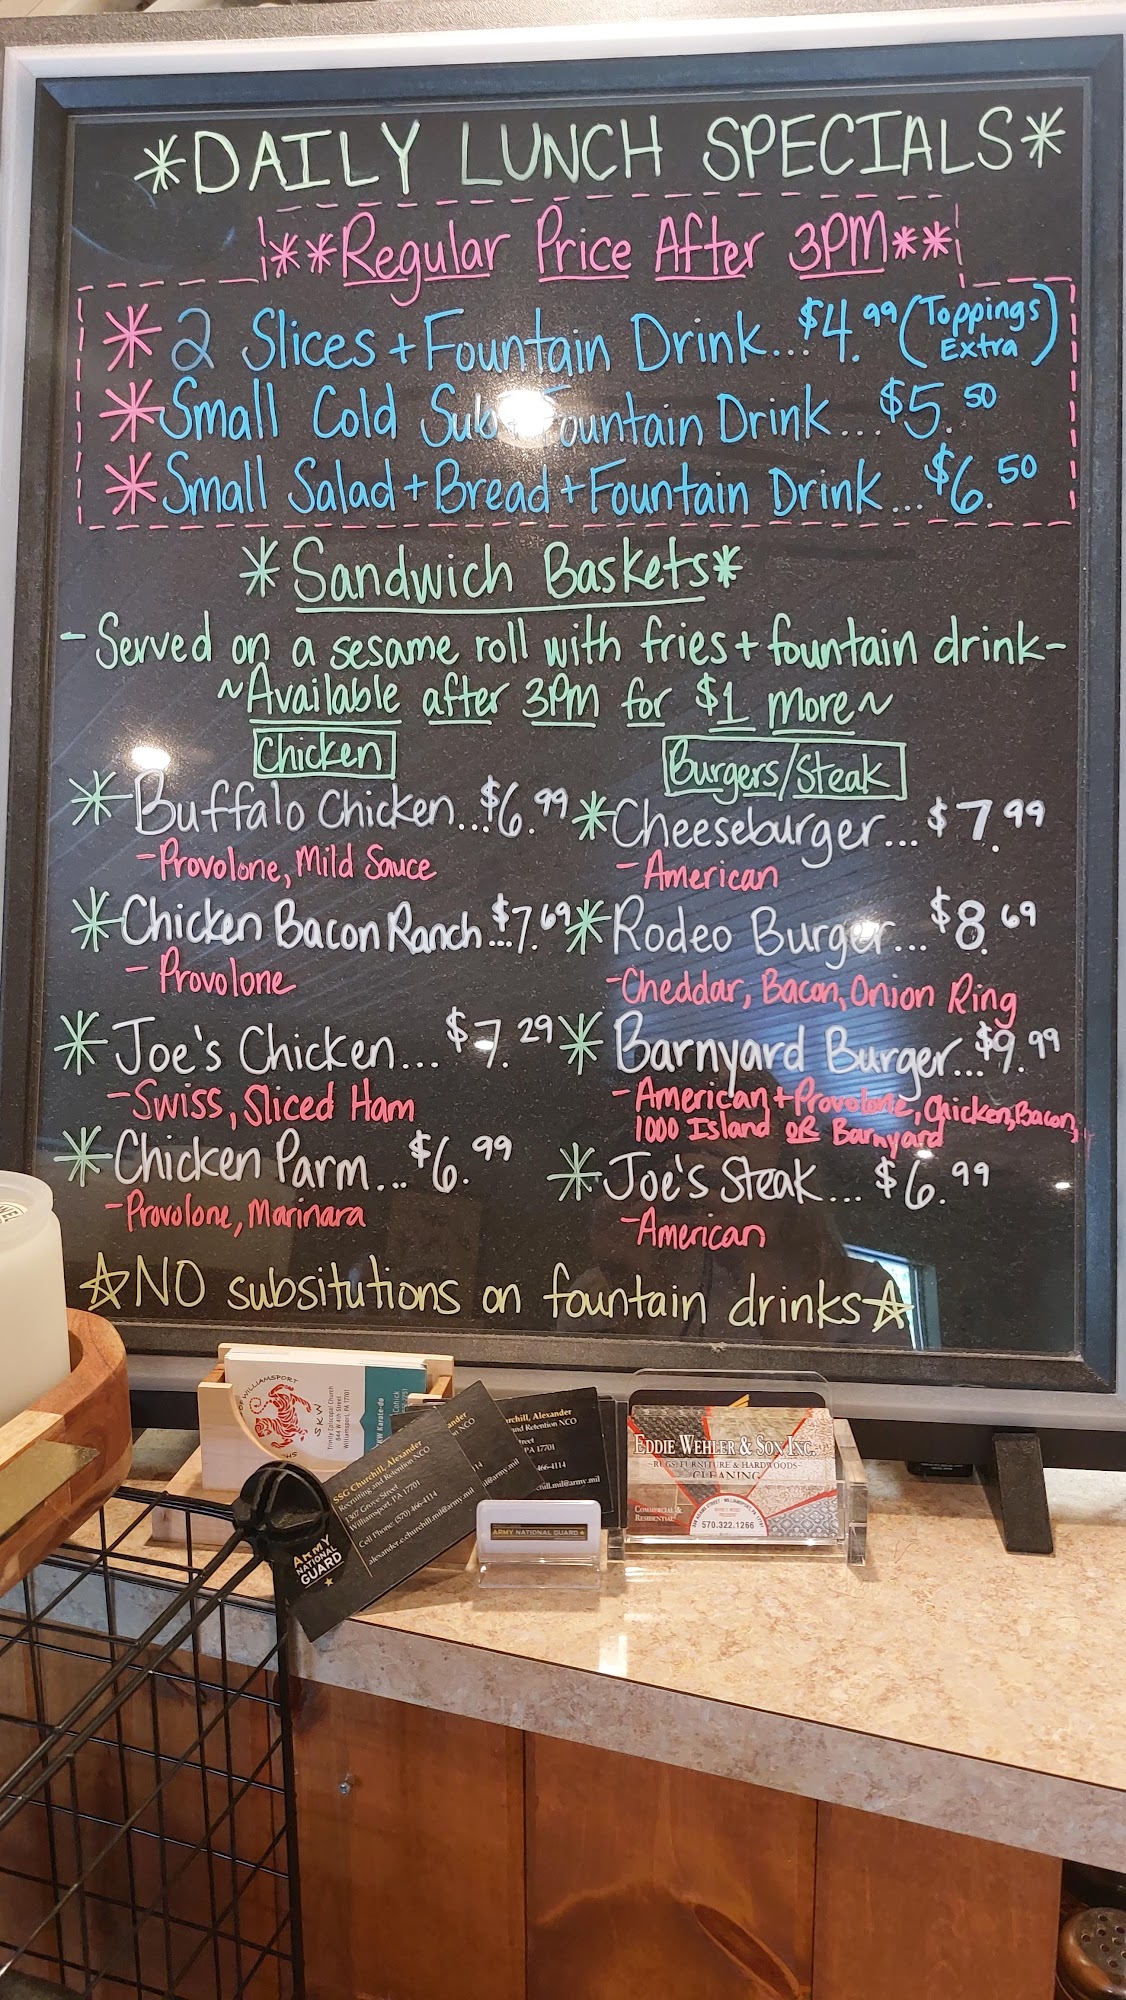 *DAILY LUNCH SPECIALS*
**Regular Price After 3PM**
* 2 Slices + Fountain Drink...$4.99 (Toppings Extra)
* Small Cold Sub + Fountain Drink...$5.50
* Small Salad + Bread + Fountain Drink...$6.50
*Sandwich Baskets*
- Served on a sesame roll with fries + fountain drink -
~Available after 3PM for $1 more~
Chicken
* Buffalo Chicken...$6.99
- Provolone, Mild Sauce
* Chicken Bacon Ranch...$7.69
- Provolone
* Joe's Chicken...$7.29
- Swiss, Sliced Ham
* Chicken Parm...$6.99
- Provolone, Marinara
Burgers/Steak
* Cheeseburger...$7.99
- American
* Rodeo Burger...$8.69
- Cheddar, Bacon, Onion Ring
* Barnyard Burger...$9.99
- American + Provolone, Chicken, Bacon,
1000 Island OR Barnyard
* Joe's Steak...$6.99
- American
☆NO subsitutions on fountain drinks☆
OF WILLIAMSPORT
SKW
Trinity Episcopal Church
844 W 4th Street
Williamsport, PA 17701
SSG Churchill, Alexander
Recruiting and Retention NCO
1307 Grove Street
Williamsport, PA 17701
Cell Phone: (570) 466-4114
alexander.c.churchill.mil@army.mil
ARMY
NATIONAL
GUARD
churchill, Alexander
and Retention NCO
Street
PA 17701
466-4114
chill.mil@army.mil
ARMY NATIONAL GUARD
EDDIE WEHLER & SON INC.
RUGS·FURNITURE & HARDWOODS
CLEANING
COMMERCIAL &
RESIDENTIAL
570.322.1266